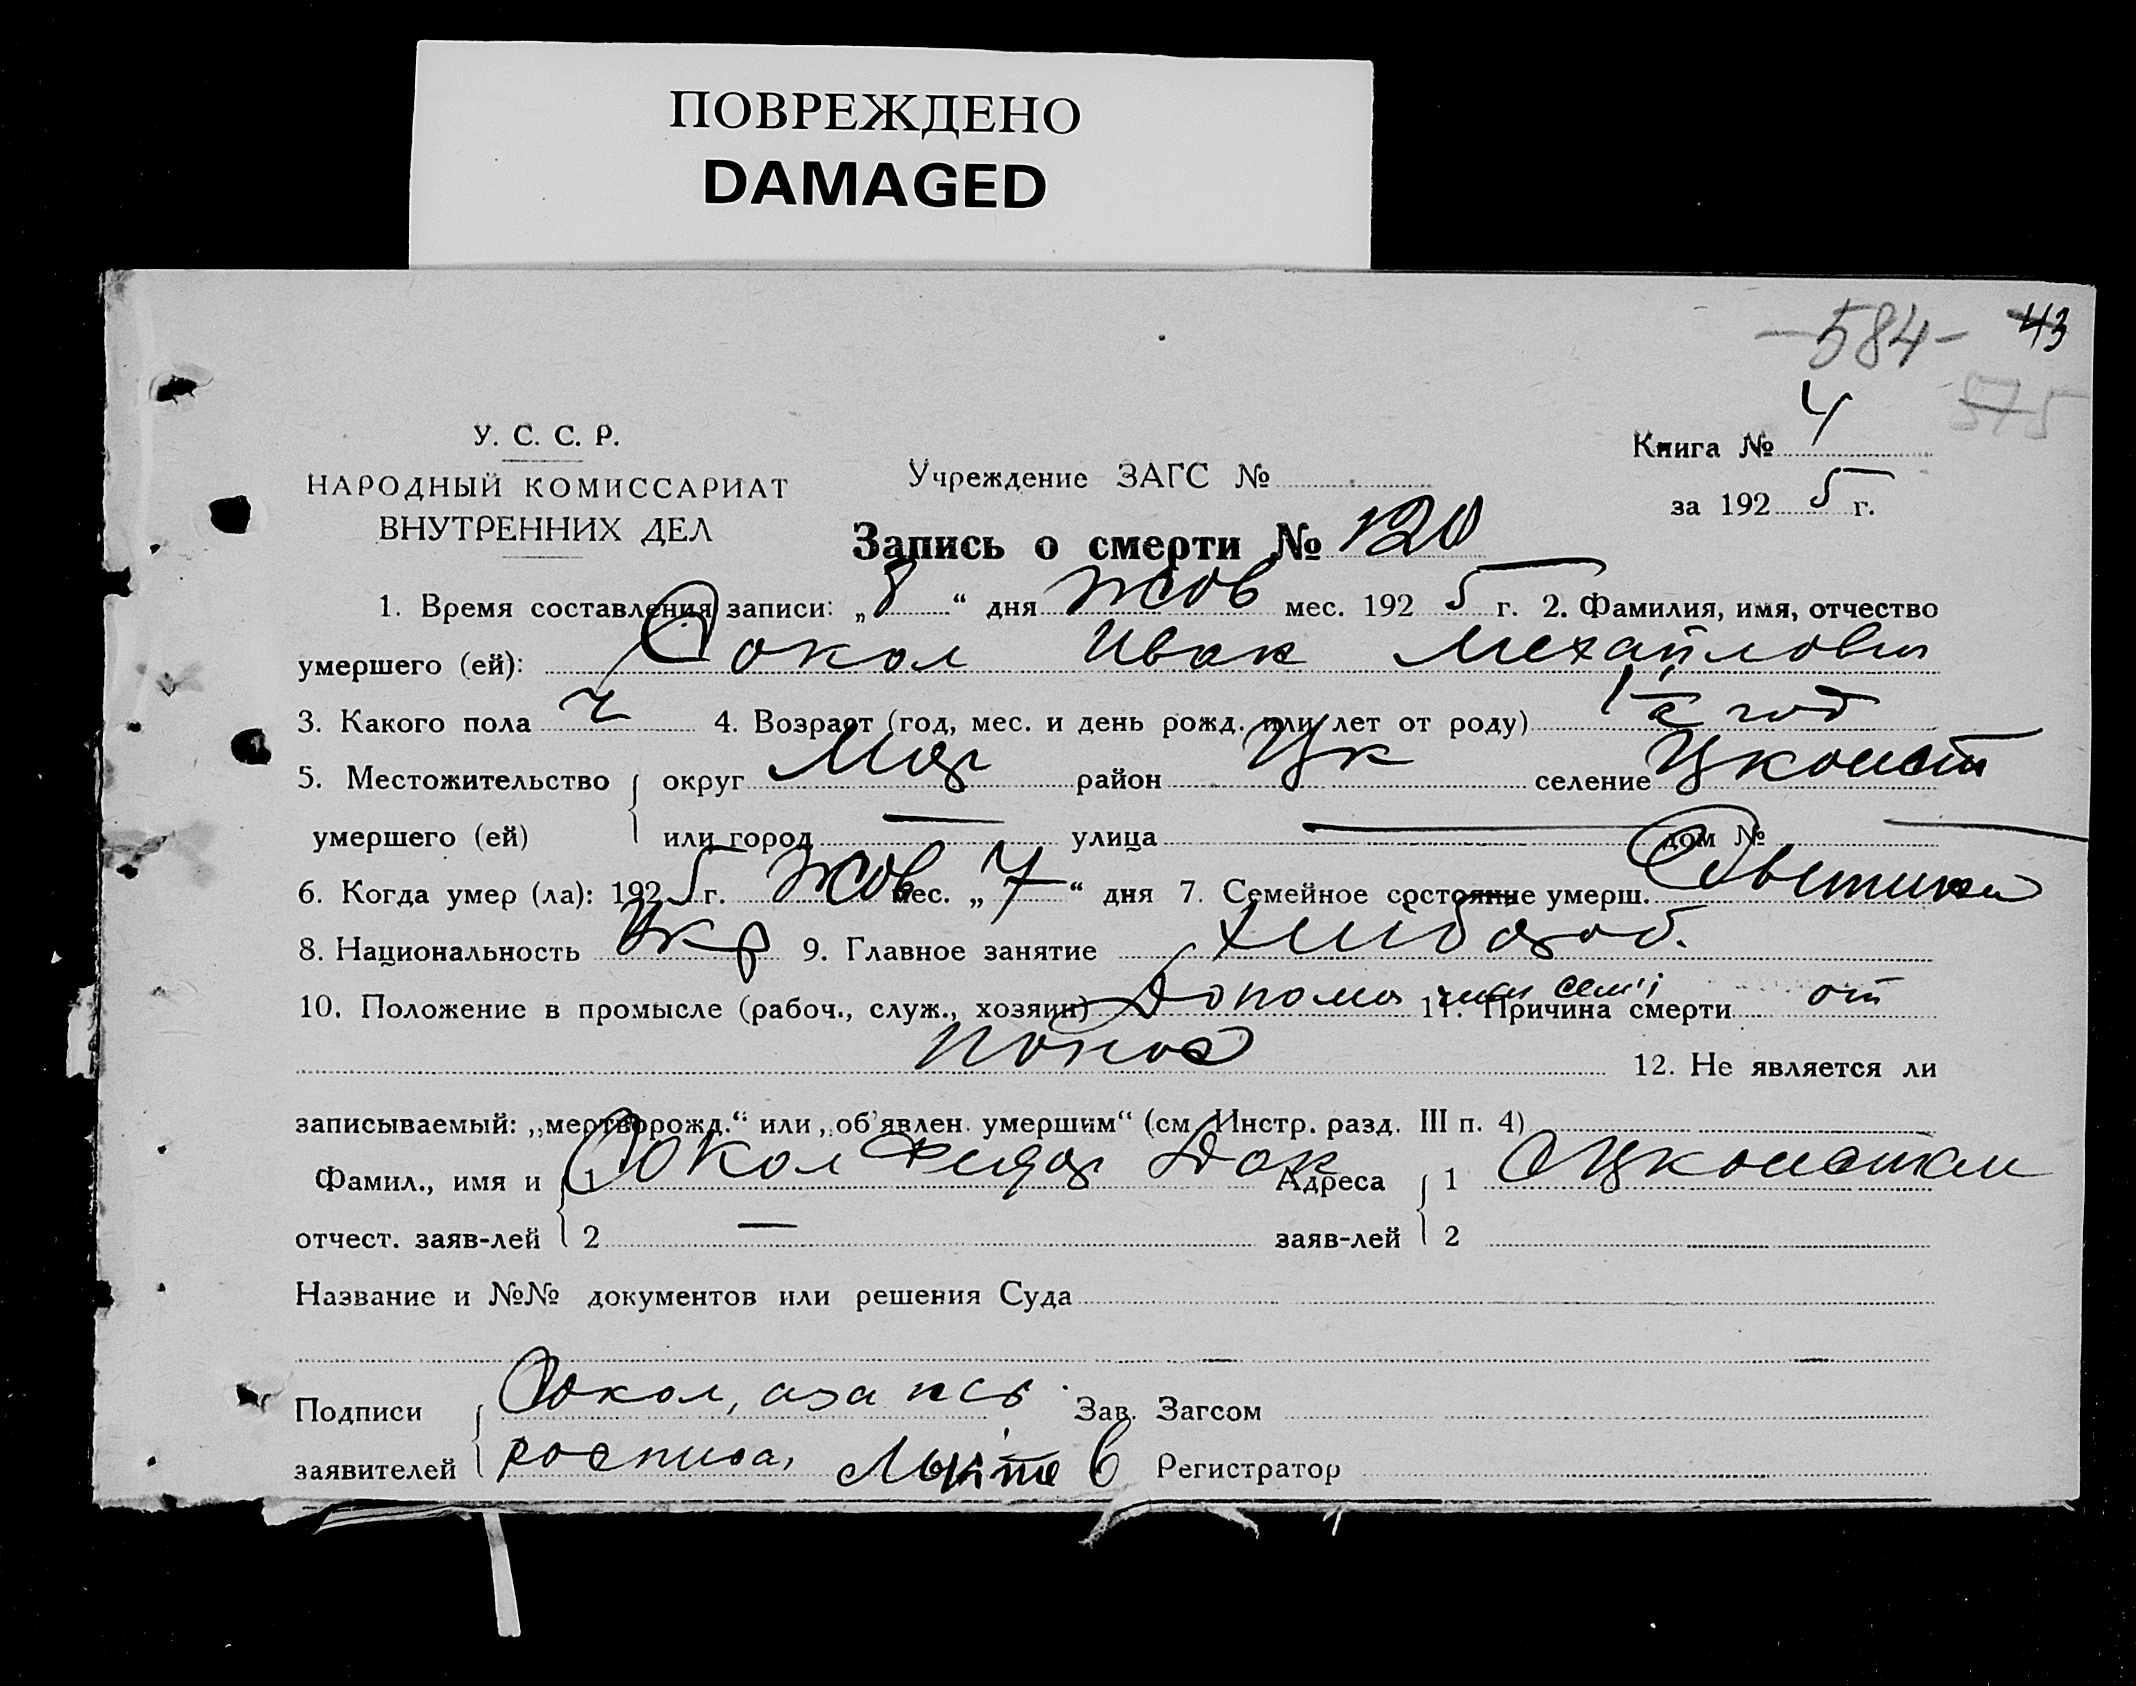 ПОВРЕЖДЕНО
DAMAGED
-584- 43
575
У. С. С. Р.
НАРОДНЫЙ КОМИССАРИАТ
ВНУТРЕННИХ ДЕЛ
Учреждение ЗАГС №
Книга № 4
за 1925 г.
Запись о смерти № 120
1. Время составления записи: „8“ дня жов мес. 1925 г. 2. Фамилия, имя, отчество
умершего (ей): Сокол Иван Михайлович
3. Какого пола ч 4. Возраст (год, мес. и день рожд. или лет от роду) 1 год
5. Местожительство округ район селение
умершего (ей) или город — улица — дом № —
6. Когда умер (ла): 1925 г. жов мес. „7“ дня 7. Семейное состояние умерш.
8. Национальность Укр 9. Главное занятие хлібороб.
10. Положение в промысле (рабоч., служ., хозяин) сем'ї 11. Причина смерти от
понос
12. Не является ли
записываемый: „мертворожд.“ или „об'явлен. умершим“ (см. Инстр. разд. III п. 4)
Фамил., имя и 1 Сокол Адреса 1
отчест. заяв-лей 2 — заяв-лей 2
Название и №№ документов или решения Суда
Подписи Сокол, Зав. Загсом
заявителей Регистратор